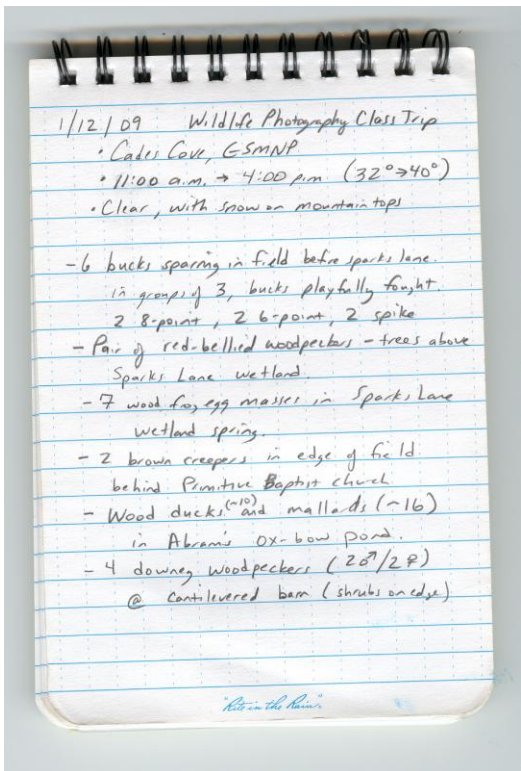 1/12/09 Wildlife Photography Class Trip
• Cades Cove, GSMNP
• 11:00 a.m. → 4:00 p.m (32°→40°)
• Clear, with snow on mountain tops
- 6 bucks sparring in field before sparks lane.
in groups of 3, bucks playfully fought.
2 8-point, 2 6-point, 2 spike
- Pair of red-bellied woodpeckers - trees above
Sparks Lane wetland.
- 7 wood frog egg masses in Sparks Lane
wetland spring.
- 2 brown creepers in edge of field
behind Primitive Baptist church
- Wood ducks (~10) and mallards (~16)
in Abram's ox-bow pond.
- 4 downey woodpeckers (2♂/2♀)
@ cantilevered barn (shrubs on edge)
"Rite in the Rain".